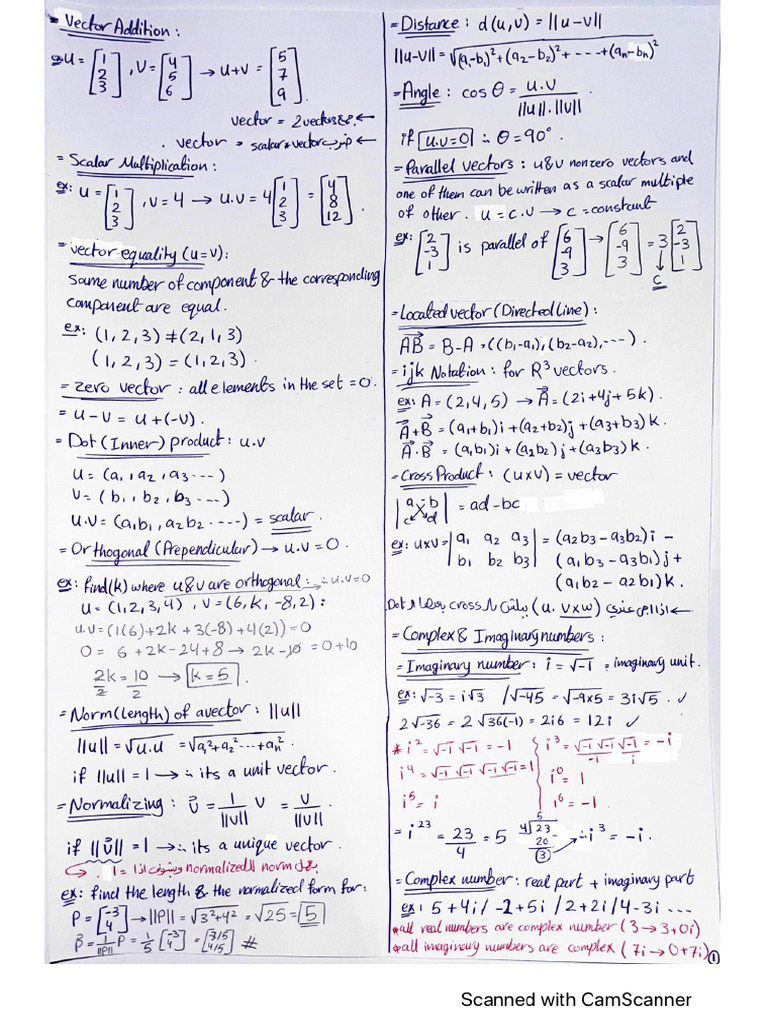 = Vector Addition :
ex: u = [1 2 3] , V = [4 5 6] → u+v = [5 7 9] .
vector = 2 vectors ←
. vector = scalar * vector ضرب ←
= Scalar Multiplication :
ex: u = [1 2 3] , v = 4 → u.v = 4 [1 2 3] = [4 8 12] .
= vector equality (u=v) :
same number of component & the corresponding
component are equal .
ex: (1, 2, 3) ≠ (2, 1, 3)
(1, 2, 3) = (1, 2, 3) .
= zero vector : all elements in the set = 0 .
= u - v = u + (-v) .
= Dot (Inner) product : u.v
u = (a₁ , a₂ , a₃ ...)
v = (b₁ , b₂ , b₃ ...)
u.v = (a₁b₁ , a₂b₂ ....) = scalar .
= Orthogonal (Prependicular) → u.v = 0 .
ex: find (k) where u & v are orthogonal : ∴ u.v = 0
u = (1, 2, 3, 4) , v = (6, k, -8, 2) :
u.v = (1(6) + 2k + 3(-8) + 4(2)) = 0
0 = 6 + 2k - 24 + 8 → 2k - 10 = 0 + 10
2k/2 = 10/2 → k = 5 .
= Norm (length) of a vector : ||u||
||u|| = √u.u = √a₁²+a₂² ... +aₙ² .
if ||u|| = 1 → ∴ its a unit vector .
= Normalizing : v⃗ = 1/||v|| v = v/||v||
if ||v⃗|| = 1 → ∴ its a unique vector .
norm لل normalized وبشوف اذا = 1 .
ex: find the length & the normalized form for :
P = [-3 4] → ||P|| = √3²+4² = √25 = 5
P⃗ = 1/||P|| P = 1/5 [-3 4] = [3/5 4/5] #
= Distance : d(u,v) = ||u-v||
||u-v|| = √(a₁-b₁)² + (a₂-b₂)² + --- + (aₙ-bₙ)²
= Angle : cos θ = u.v / ||u||.||v||
if u.v=0 ∴ θ = 90° .
= Parallel vectors : u & v nonzero vectors and
one of them can be written as a scalar multiple
of other . u = c.v → c = constant
ex: [2 -3 1] is parallel of [6 -9 3] → [6 -9 3] = 3 [2 -3 1]
c
= Located vector (Directed line) :
AB⃗ = B-A = ((b₁-a₁), (b₂-a₂), ---) .
= ijk Notation : for R³ vectors .
ex: A = (2, 4, 5) → A⃗ = (2i + 4j + 5k) .
A⃗+B⃗ = (a₁+b₁)i + (a₂+b₂)j + (a₃+b₃)k .
A⃗.B⃗ = (a₁b₁)i + (a₂b₂)j + (a₃b₃)k .
= Cross Product : (u×v) = vector
|a b c d| = ad - bc
ex: u×v = |a₁ a₂ a₃ b₁ b₂ b₃| = (a₂b₃ - a₃b₂)i -
(a₁b₃ - a₃b₁)j +
(a₁b₂ - a₂b₁)k .
← (u. v×w) cross ال Dot
= Complex & Imaginary numbers :
= Imaginary number : i = √-1 = imaginary unit .
ex: √-3 = i√3 / √-45 = √-9×5 = 3i√5 . ✓
2√-36 = 2 √36(-1) = 2i6 = 12i ✓
* i² = √-1 √-1 = -1
i³ = √-1 √-1 √-1 = -i
-1 i
i⁴ = √-1 √-1 √-1 √-1 = 1
i⁰ = 1
i⁵ = i
i⁶ = -1 .
= i²³ = 23/4 = 5 4√23 5 20 (3) → ∴ i³ = -i .
= Complex number : real part + imaginary part
ex: 5+4i / -1+5i / 2+2i / 4-3i ...
* all real numbers are complex number (3 → 3+0i)
* all imaginary numbers are complex (7i → 0+7i)
1
Scanned with CamScanner